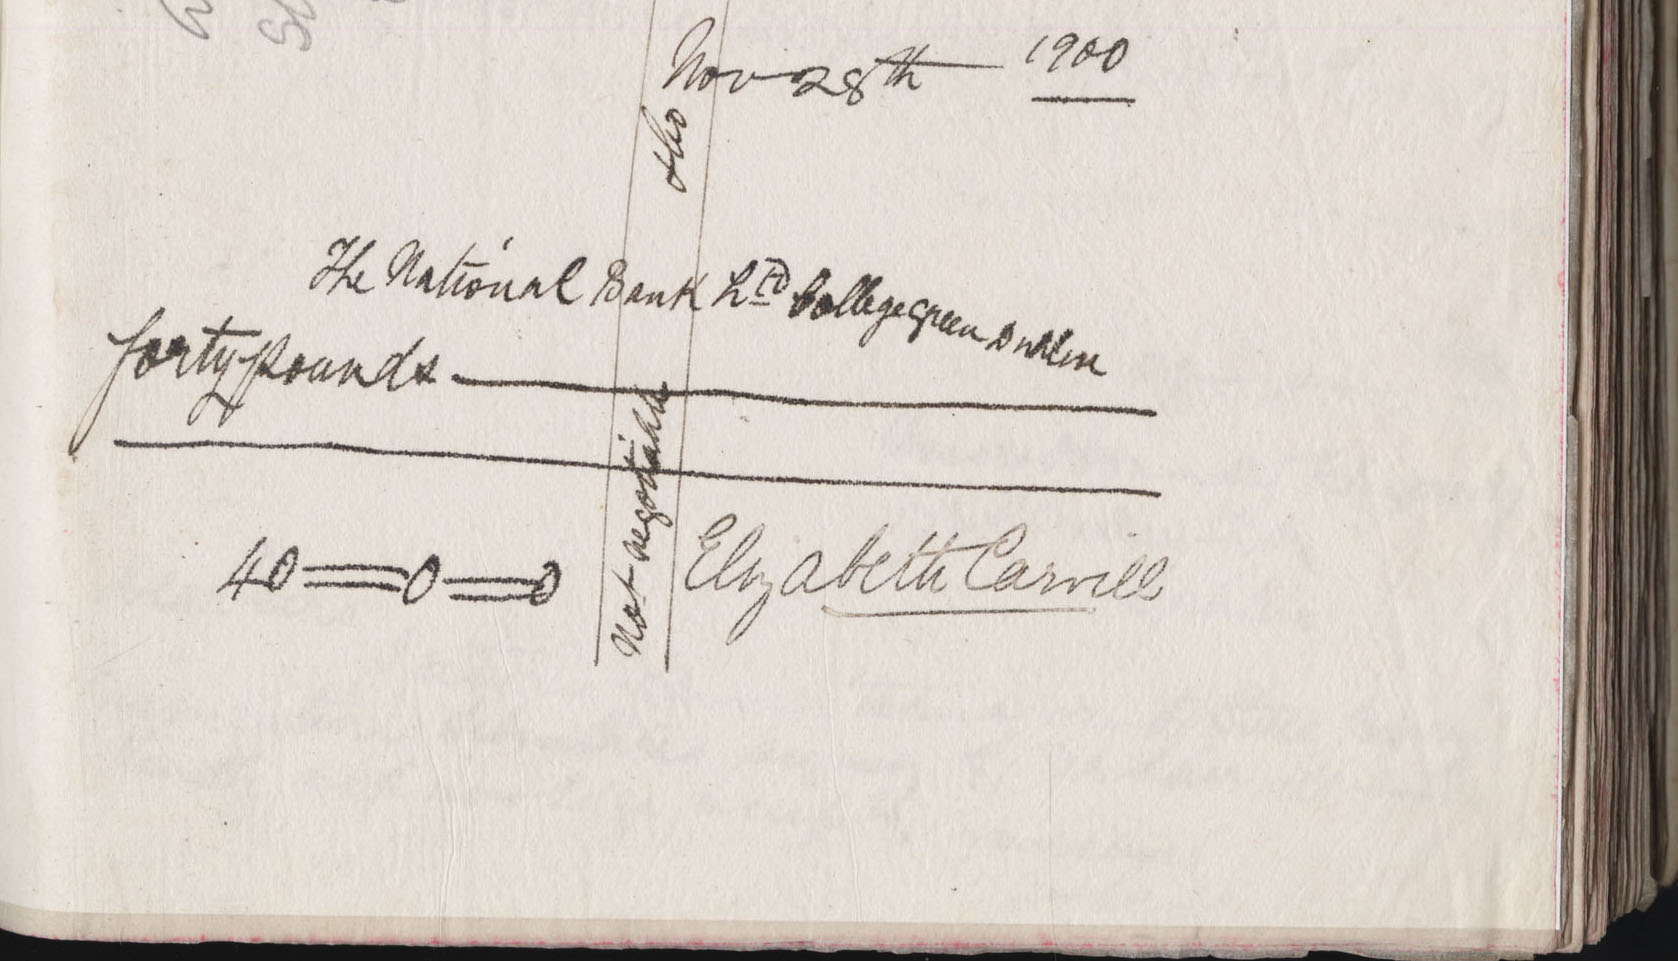 Nov 28th — 1900
The National Bank Ltd College Green Dublin
forty pounds
Not negotiable
40=0=0
Elizabeth Carvill